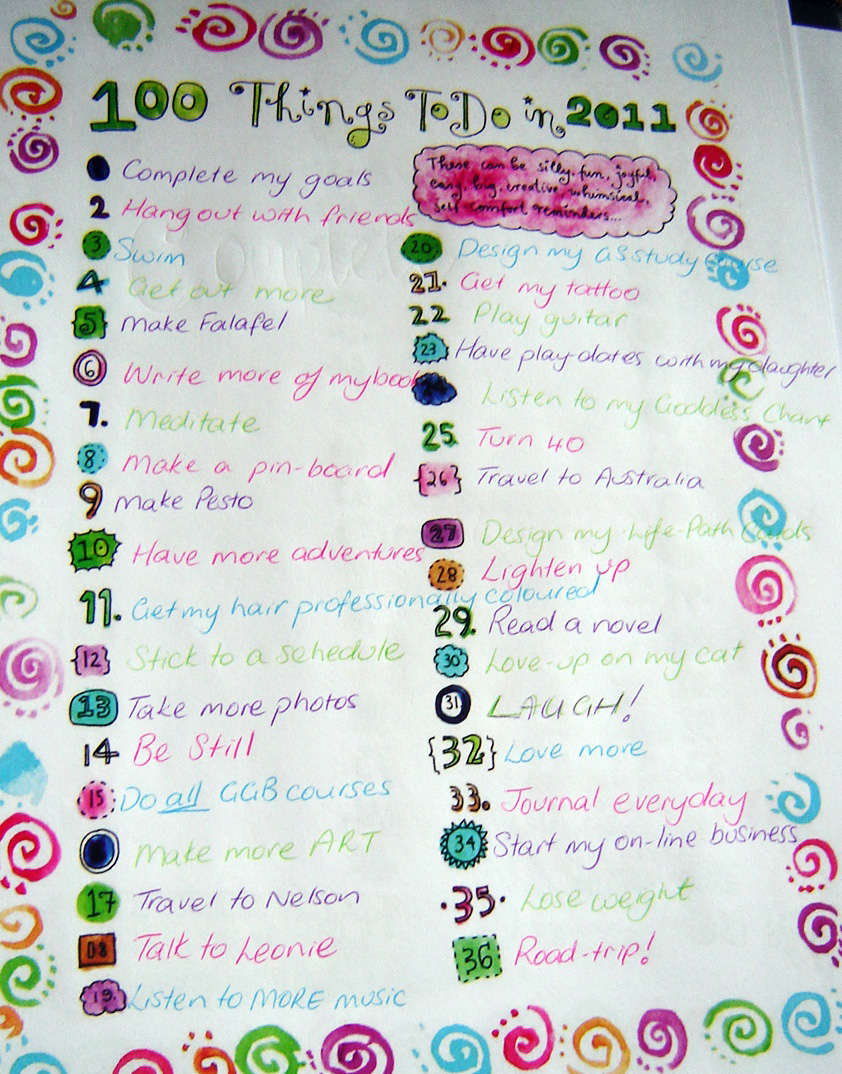 100 Things To Do in 2011
These can be silly, fun, joyful,
easy, big, creative, whimsical,
self comfort reminders...
Complete my goals
2 Hang out with friends
3 Swim
4 Get out more
5 Make Falafel
6 Write more of my book
7. Meditate
8 Make a pin-board
9 Make Pesto
10 Have more adventures
11. Get my hair professionally coloured
{12} Stick to a schedule
13 Take more photos
14 Be Still
15 Do all GGB courses
Make more ART
17 Travel to Nelson
18 Talk to Leonie
19. Listen to MORE music
20. Design my study course
21. Get my tattoo
22 Play guitar
23 Have play-dates with my daughter
Listen to my Goddess Chart
25. Turn 40
{26} Travel to Australia
27 Design my Life-Path Cards
28 Lighten up
29. Read a novel
30 Love-up on my cat
31 LAUGH!
{32} Love more
33. Journal everyday
34 Start my on-line business
.35. Lose weight
36 Road-trip!